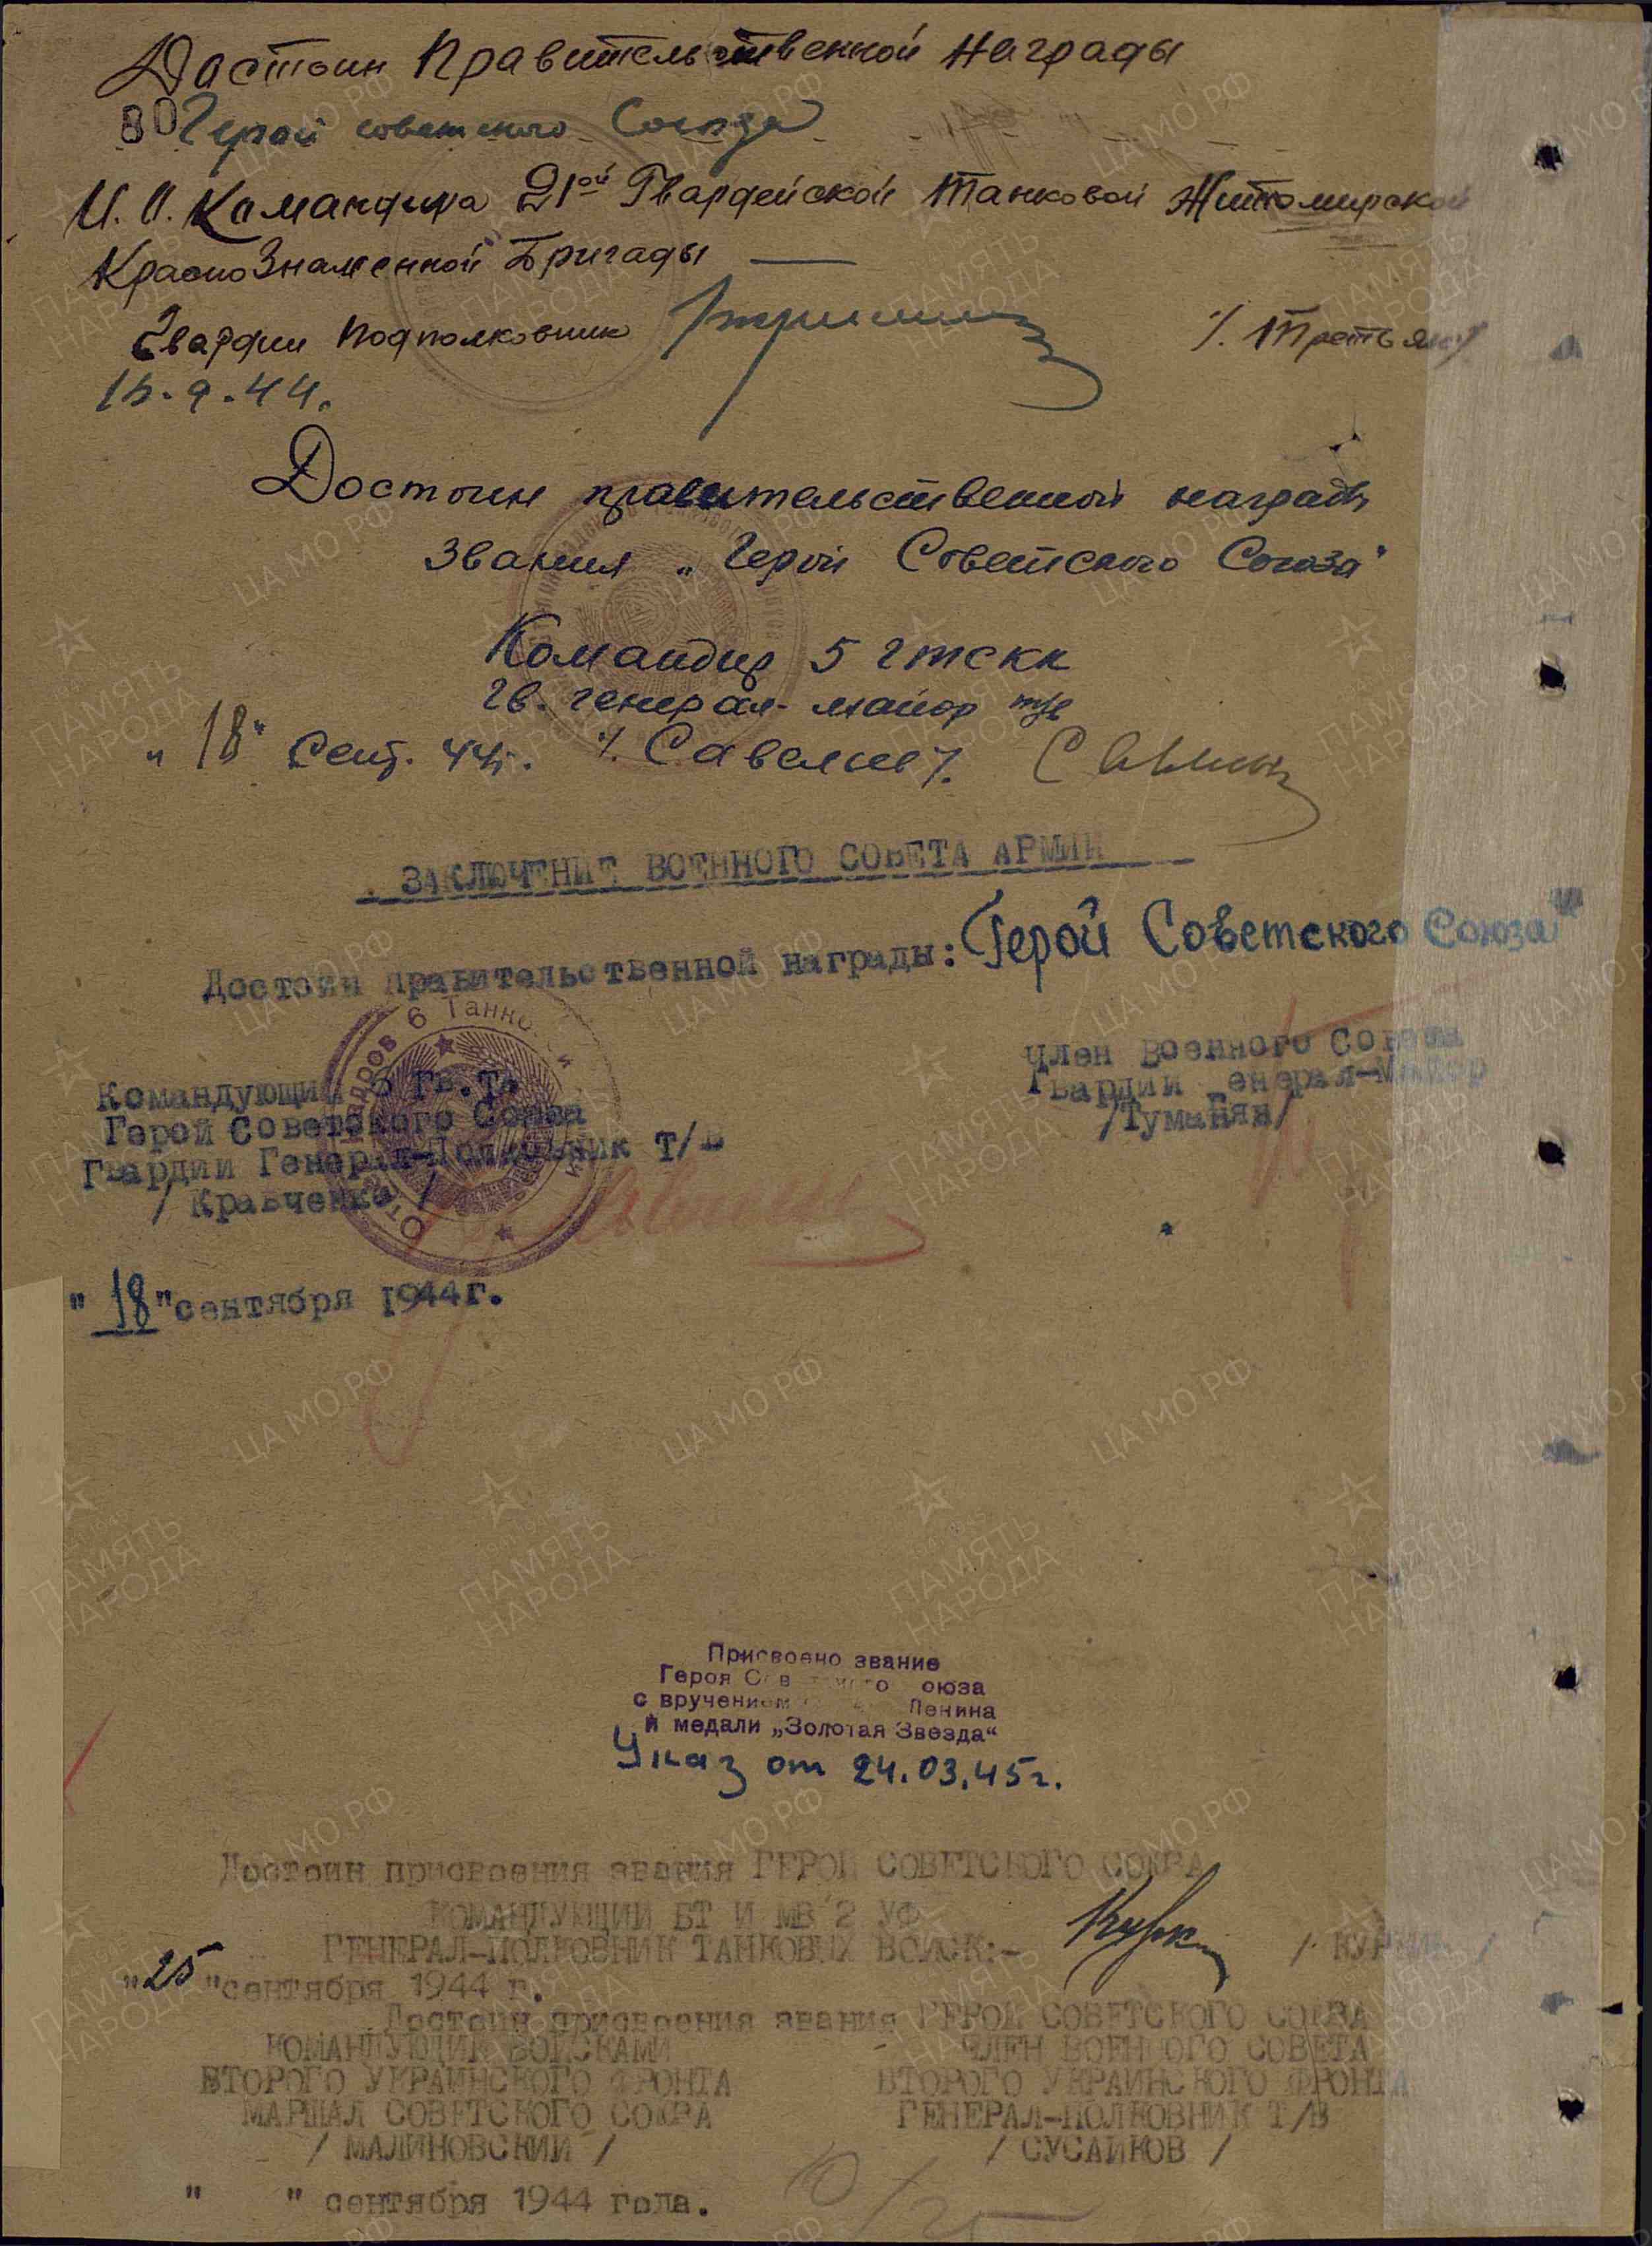 Достоин Правительственной Награды
80 Герой советского Союза
И.О. Командира 21ой Гвардейской Танковой Житомирской
КрасноЗнаменной Бригады —
Гвардии Подполковник /. Третьяк/
15.9.44.
Достоин правительственной награды
Звания „Герой Советского Союза"
Командир 5 гтскк
гв. генерал-майор т/в
„18" Сент. 44г. /. Савельев/.
ЗАКЛЮЧЕНИЕ ВОЕННОГО СОВЕТА АРМИИ
Достоин правительственной награды: Герой Советского Союза"
Командующий 6 Гв.ТА
Герой Советского Союза
Гвардии Генерал-Полковник Т/В
/ Кравченко /
Член Военного Совета
Гвардии Генерал-Майор
/Туманян/
"18" сентября 1944г.
Присвоено звание
Героя Советского Союза
с вручением Ленина
и медали „Золотая Звезда"
Указ от 24.03.45г.
Достоин присвоения звания ГЕРОЙ СОВЕТСКОГО СОЮЗА
КОМАНДУЮЩИЙ БТ И МВ 2 УФ
ГЕНЕРАЛ-ПОЛКОВНИК ТАНКОВЫХ ВОЙСК:- / КУРКИН /
"25" сентября 1944 г.
Достоин присвоения звания ГЕРОЙ СОВЕТСКОГО СОЮЗА
КОМАНДУЮЩИЙ ВОЙСКАМИ
ВТОРОГО УКРАИНСКОГО ФРОНТА
МАРШАЛ СОВЕТСКОГО СОЮЗА
/ МАЛИНОВСКИЙ /
ЧЛЕН ВОЕННОГО СОВЕТА
ВТОРОГО УКРАИНСКОГО ФРОНТА
ГЕНЕРАЛ-ПОЛКОВНИК Т/В
/ СУСАЙКОВ /
" " сентября 1944 года.
ПАМЯТЬ
НАРОДА
ЦА МО РФ